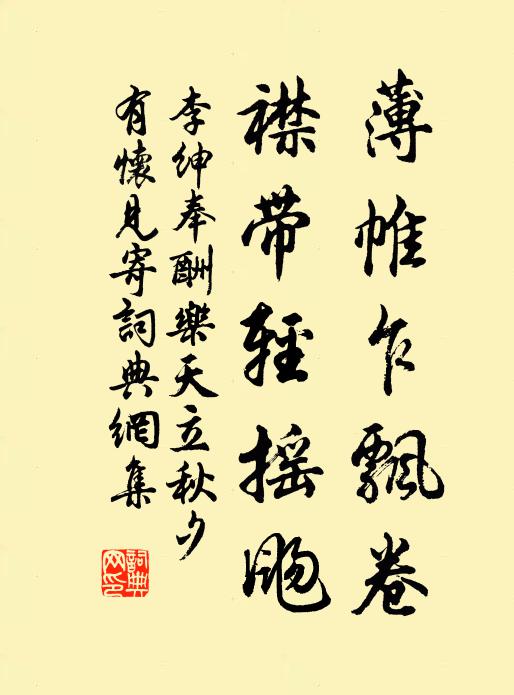 薄帷乍飄卷
襟帶輕搖颺
李紳奉酬樂天立秋夕
有懷見寄詞典網集
詞典網印